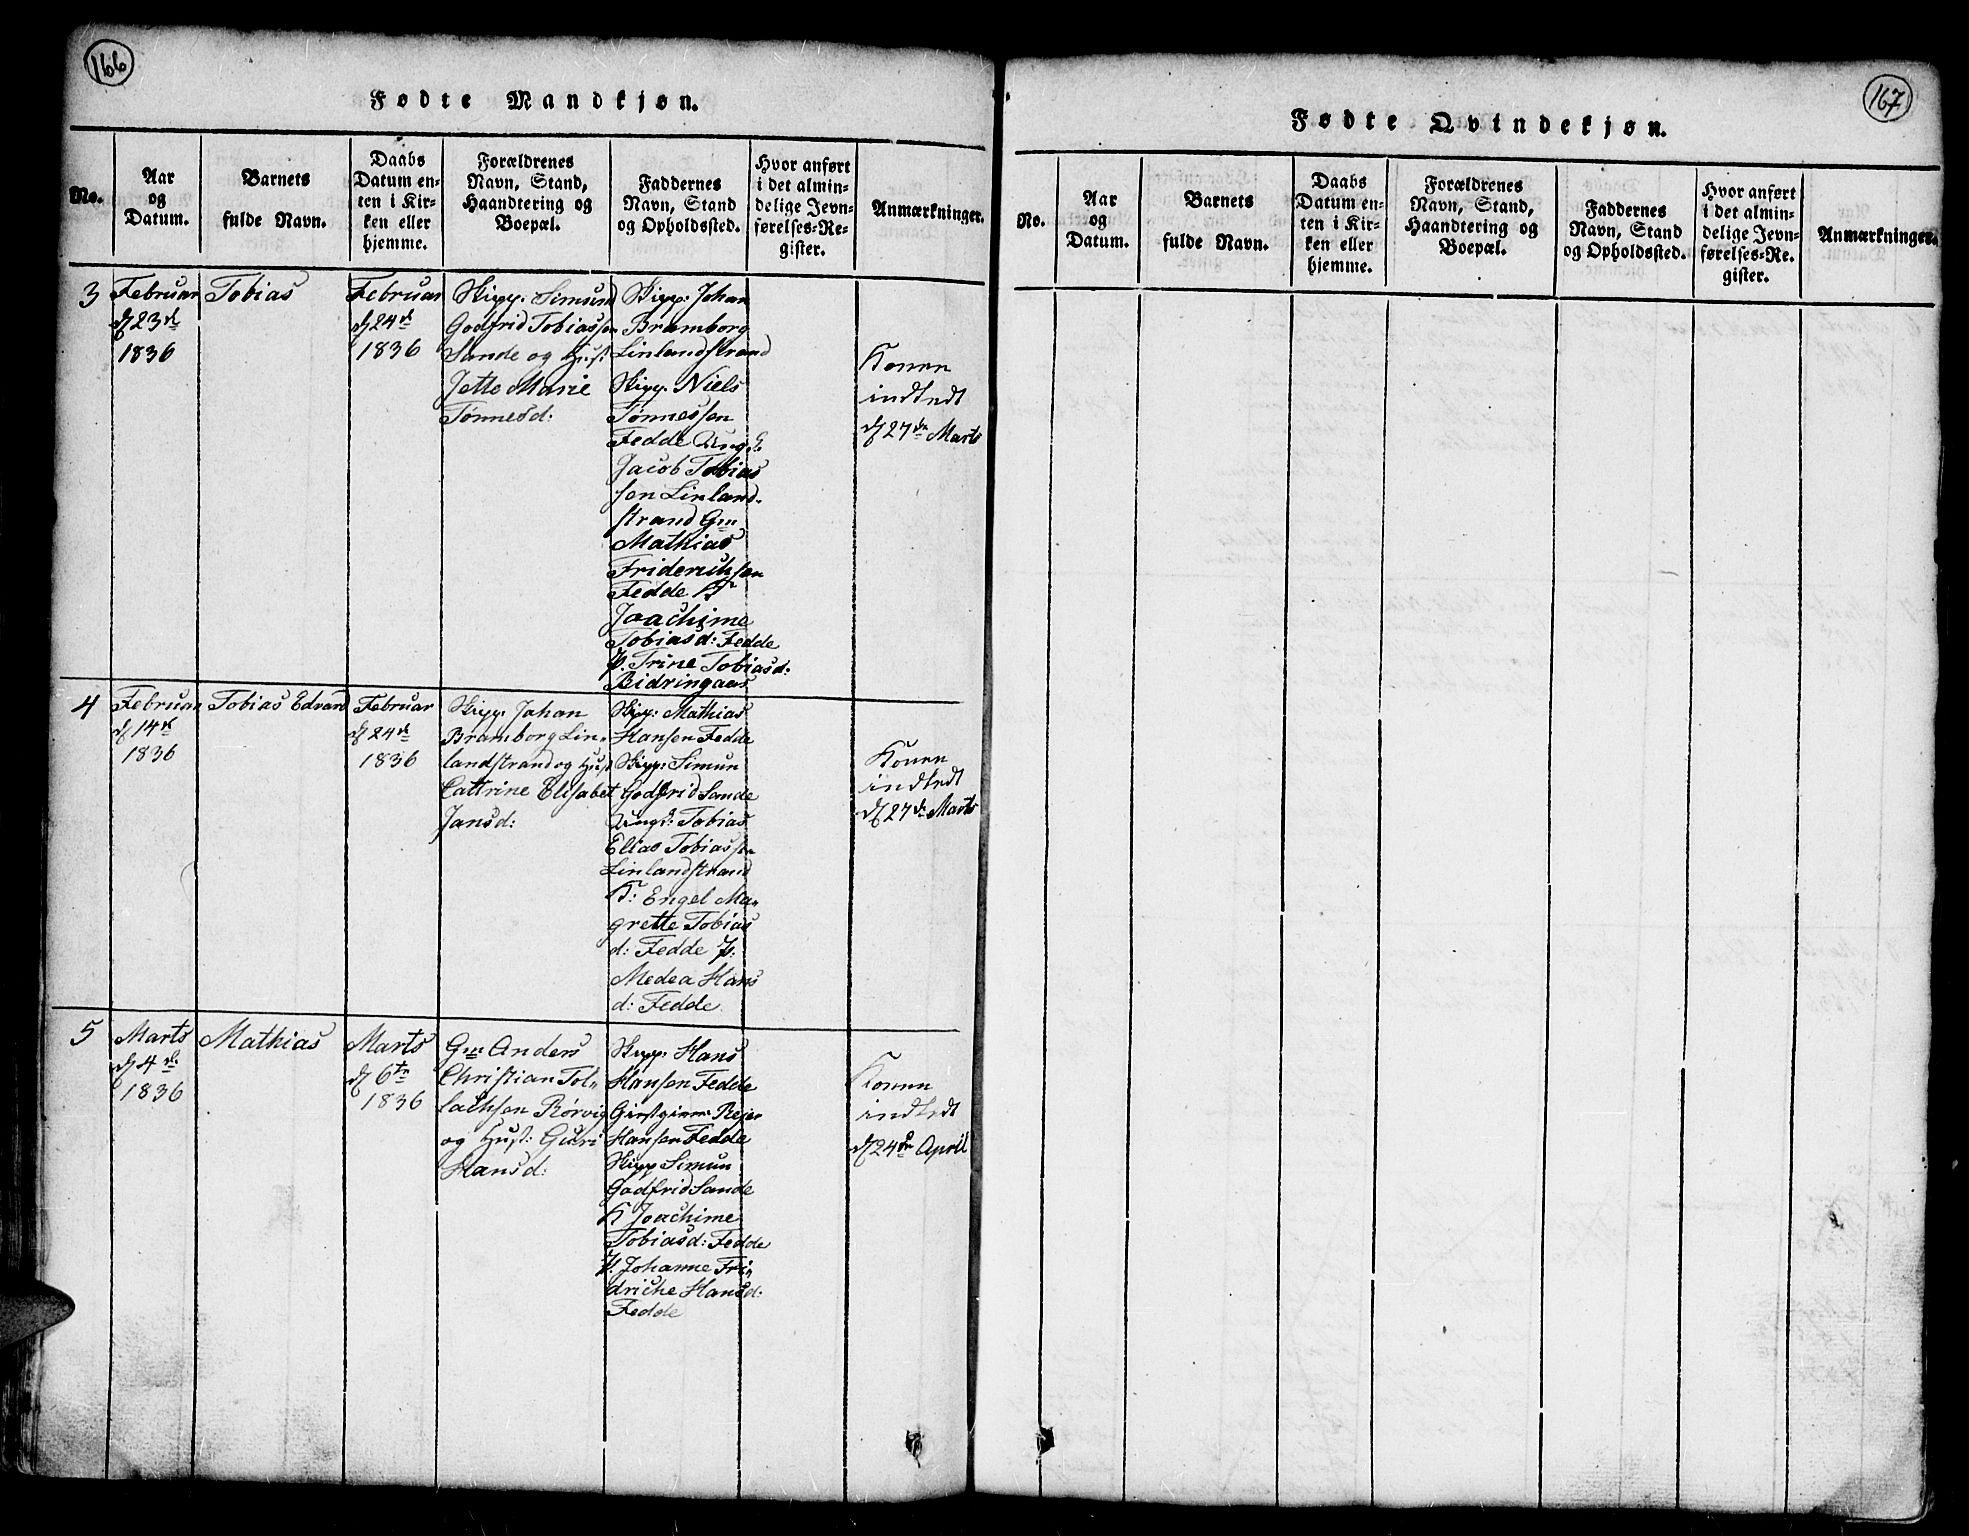 166
Fødte Mandkjøn.
No.
Aar
og
Datum.
Barnets
fulde Navn.
Daabs
Datum en-
ten i Kir-
ken eller
hjemme.
Forældrenes
Navn, Stand,
Haandtering og
Boepæl.
Faddernes
Navn, Stand
og Opholdssted.
Hvor anført
i det almin-
delige Jevn-
førelses-Re-
gister.
Anmærkninger.
3
Februar
d 23d
1836
Tobias
Februar
d 24d
1836
Skipp: Simun
Godfrid Tobiassen
Sande og Hust
Jette Marie
Tønnesd:
Skipp: Johan
Bramborg
Linlandstrand
Skipp: Niels
Tønnessen
Fedde Ung
Jacob Tobias
sen Linland-
strand Gm
Mathias
Friderichsen
Fedde K
Joachime
Tobiasd: Fedde
P. Trine Tobiasd:
Bidringaas
Konen
indledt
d 27de Marts
4
Februar
d 14d
1836
Tobias Edvard
Februar
d 24d
1836
Skipp: Johan
Bramborg Lin-
landstrand og Hust
Cattrine Elisabet
Jansd:
Skipp: Mathias
Hansen Fedde
Skipp: Simun
Godfrid Sande
Ungd: Tobias
Elias Tobiassen
Linlandstrand
K: Engel Ma-
grette Tobias
d: Fedde P:
Medea Hans
d: Fedde
Konen
indledt
d 27de Marts
5
Marts
d 4de
1836
Mathias
Marts
d 6te
1836
Gm Anders
Christian Tol-
lachsen Rørvig
og Hust: Guri
Hansd:
Skipp: Hans
Hansen Fedde
Giestgiver Rejer
Hansen Fedde
Skipp Simun
Godfrid Sande
K Joachime
Tobiasd: Fedde
P. Johanne Fri-
driche Hansd:
Fedde
Konen
indledt
d 24de April
167
Fødte Qvindekjøn.
No.
Aar
og
Datum.
Barnets
fulde Navn.
Daabs
Datum en-
ten i Kir-
ken eller
hjemme.
Forældrenes
Navn, Stand,
Haandtering og
Boepæl.
Faddernes
Navn, Stand
og Opholdssted.
Hvor anført
i det almin-
delige Jevn-
førelses-Re-
gister.
Anmærkninger.